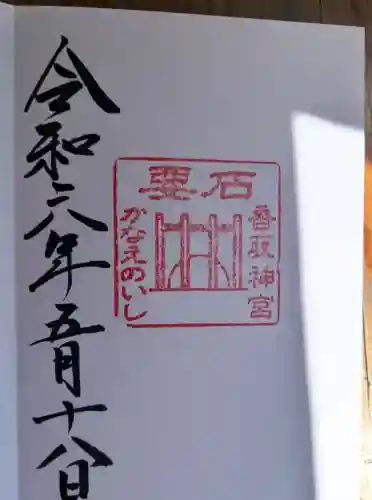 香取神宮
要石
かなえのいし
令和六年五月十八日